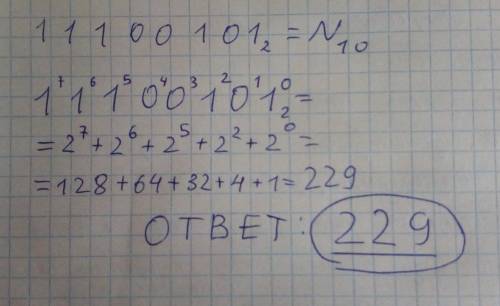 11100101₂ = N₁₀
1⁷1⁶1⁵0⁴0³1²0¹1⁰₂ =
= 2⁷ + 2⁶ + 2⁵ + 2² + 2⁰ =
= 128 + 64 + 32 + 4 + 1 = 229
ОТВЕТ: 229